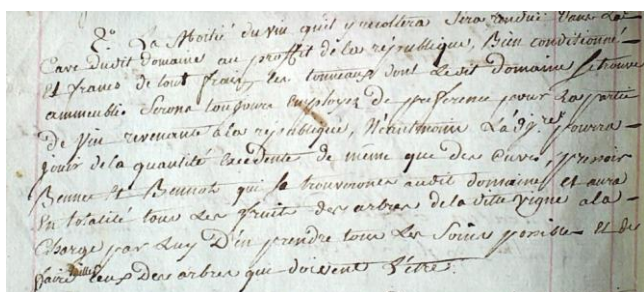 2° La Moitié du vin quil y recoltera Sera rendüe dans La
Cave dudit domaine au proffit de la republique, Bien conditionné
Et franco de tout frais, les tonneaux dont Ledit domaine Se trouve
ammeublé Seront toujours Employez de preference pour La partie
de Vin revenante a la republique, Néantmoin L'adj.re pourra
jouir de la quantité Excedente de même que des Cuves, pressoir
Benne et Bennot qui se trouveront audit domaine et aura
En totalité tous Les fruits des arbres de la ditte vigne a la
Charge par Luy D'en prendre tous Les Soins possible et de
faire tailler ceux des arbres que doivent L'être.